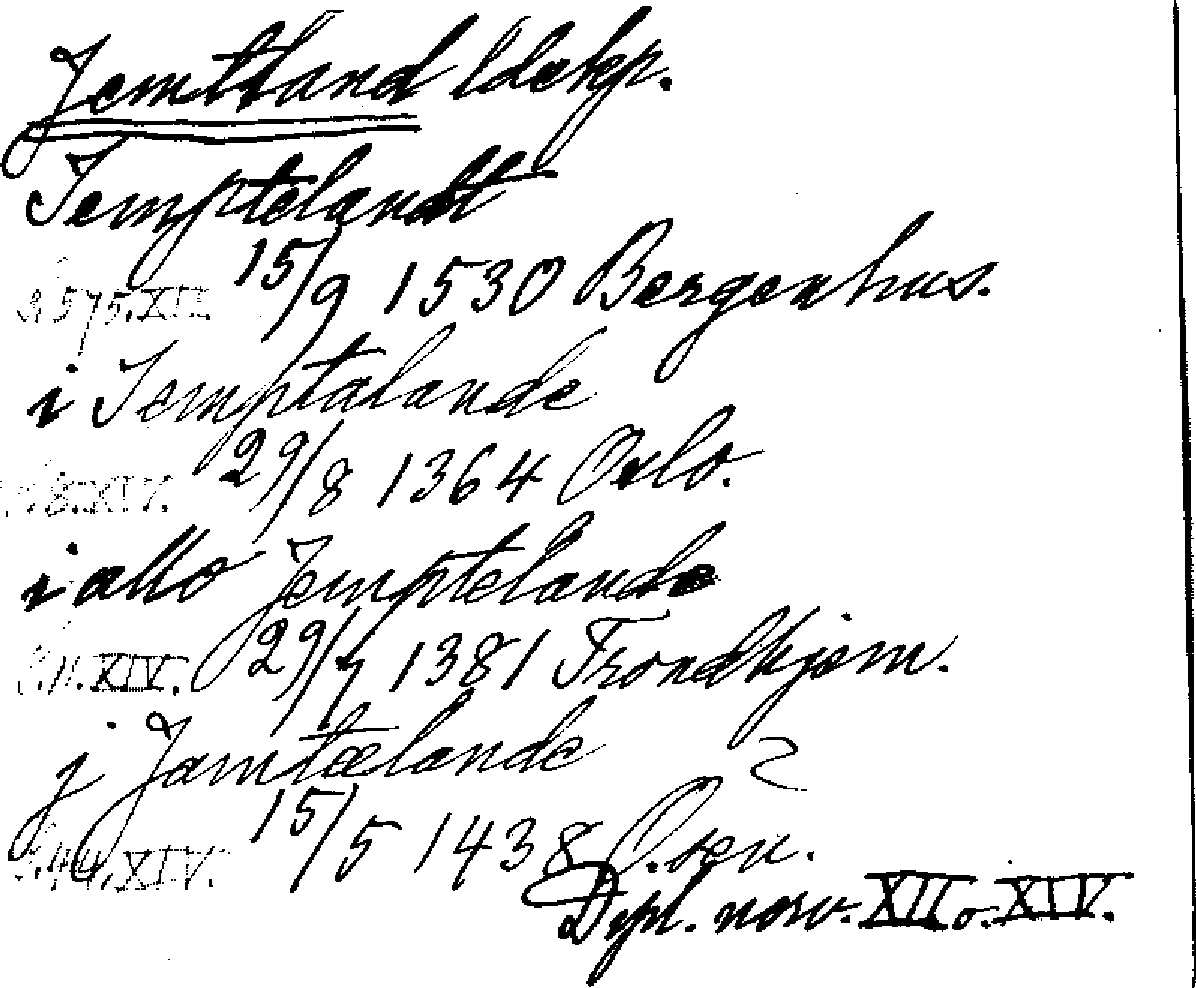 Jemtland ldskp.
Jemptelandt
S. 575. XII 15/9 1530 Bergenhus.
i Jemptalande
S. 8. XIV. 29/8 1364 Oslo.
i allo Jemptelande
S. 11. XIV. 29/7 1381 Trondhjem.
j Jamtælande
S. 44. XIV. 15/5 1438
Dipl. norv. XII o. XIV.